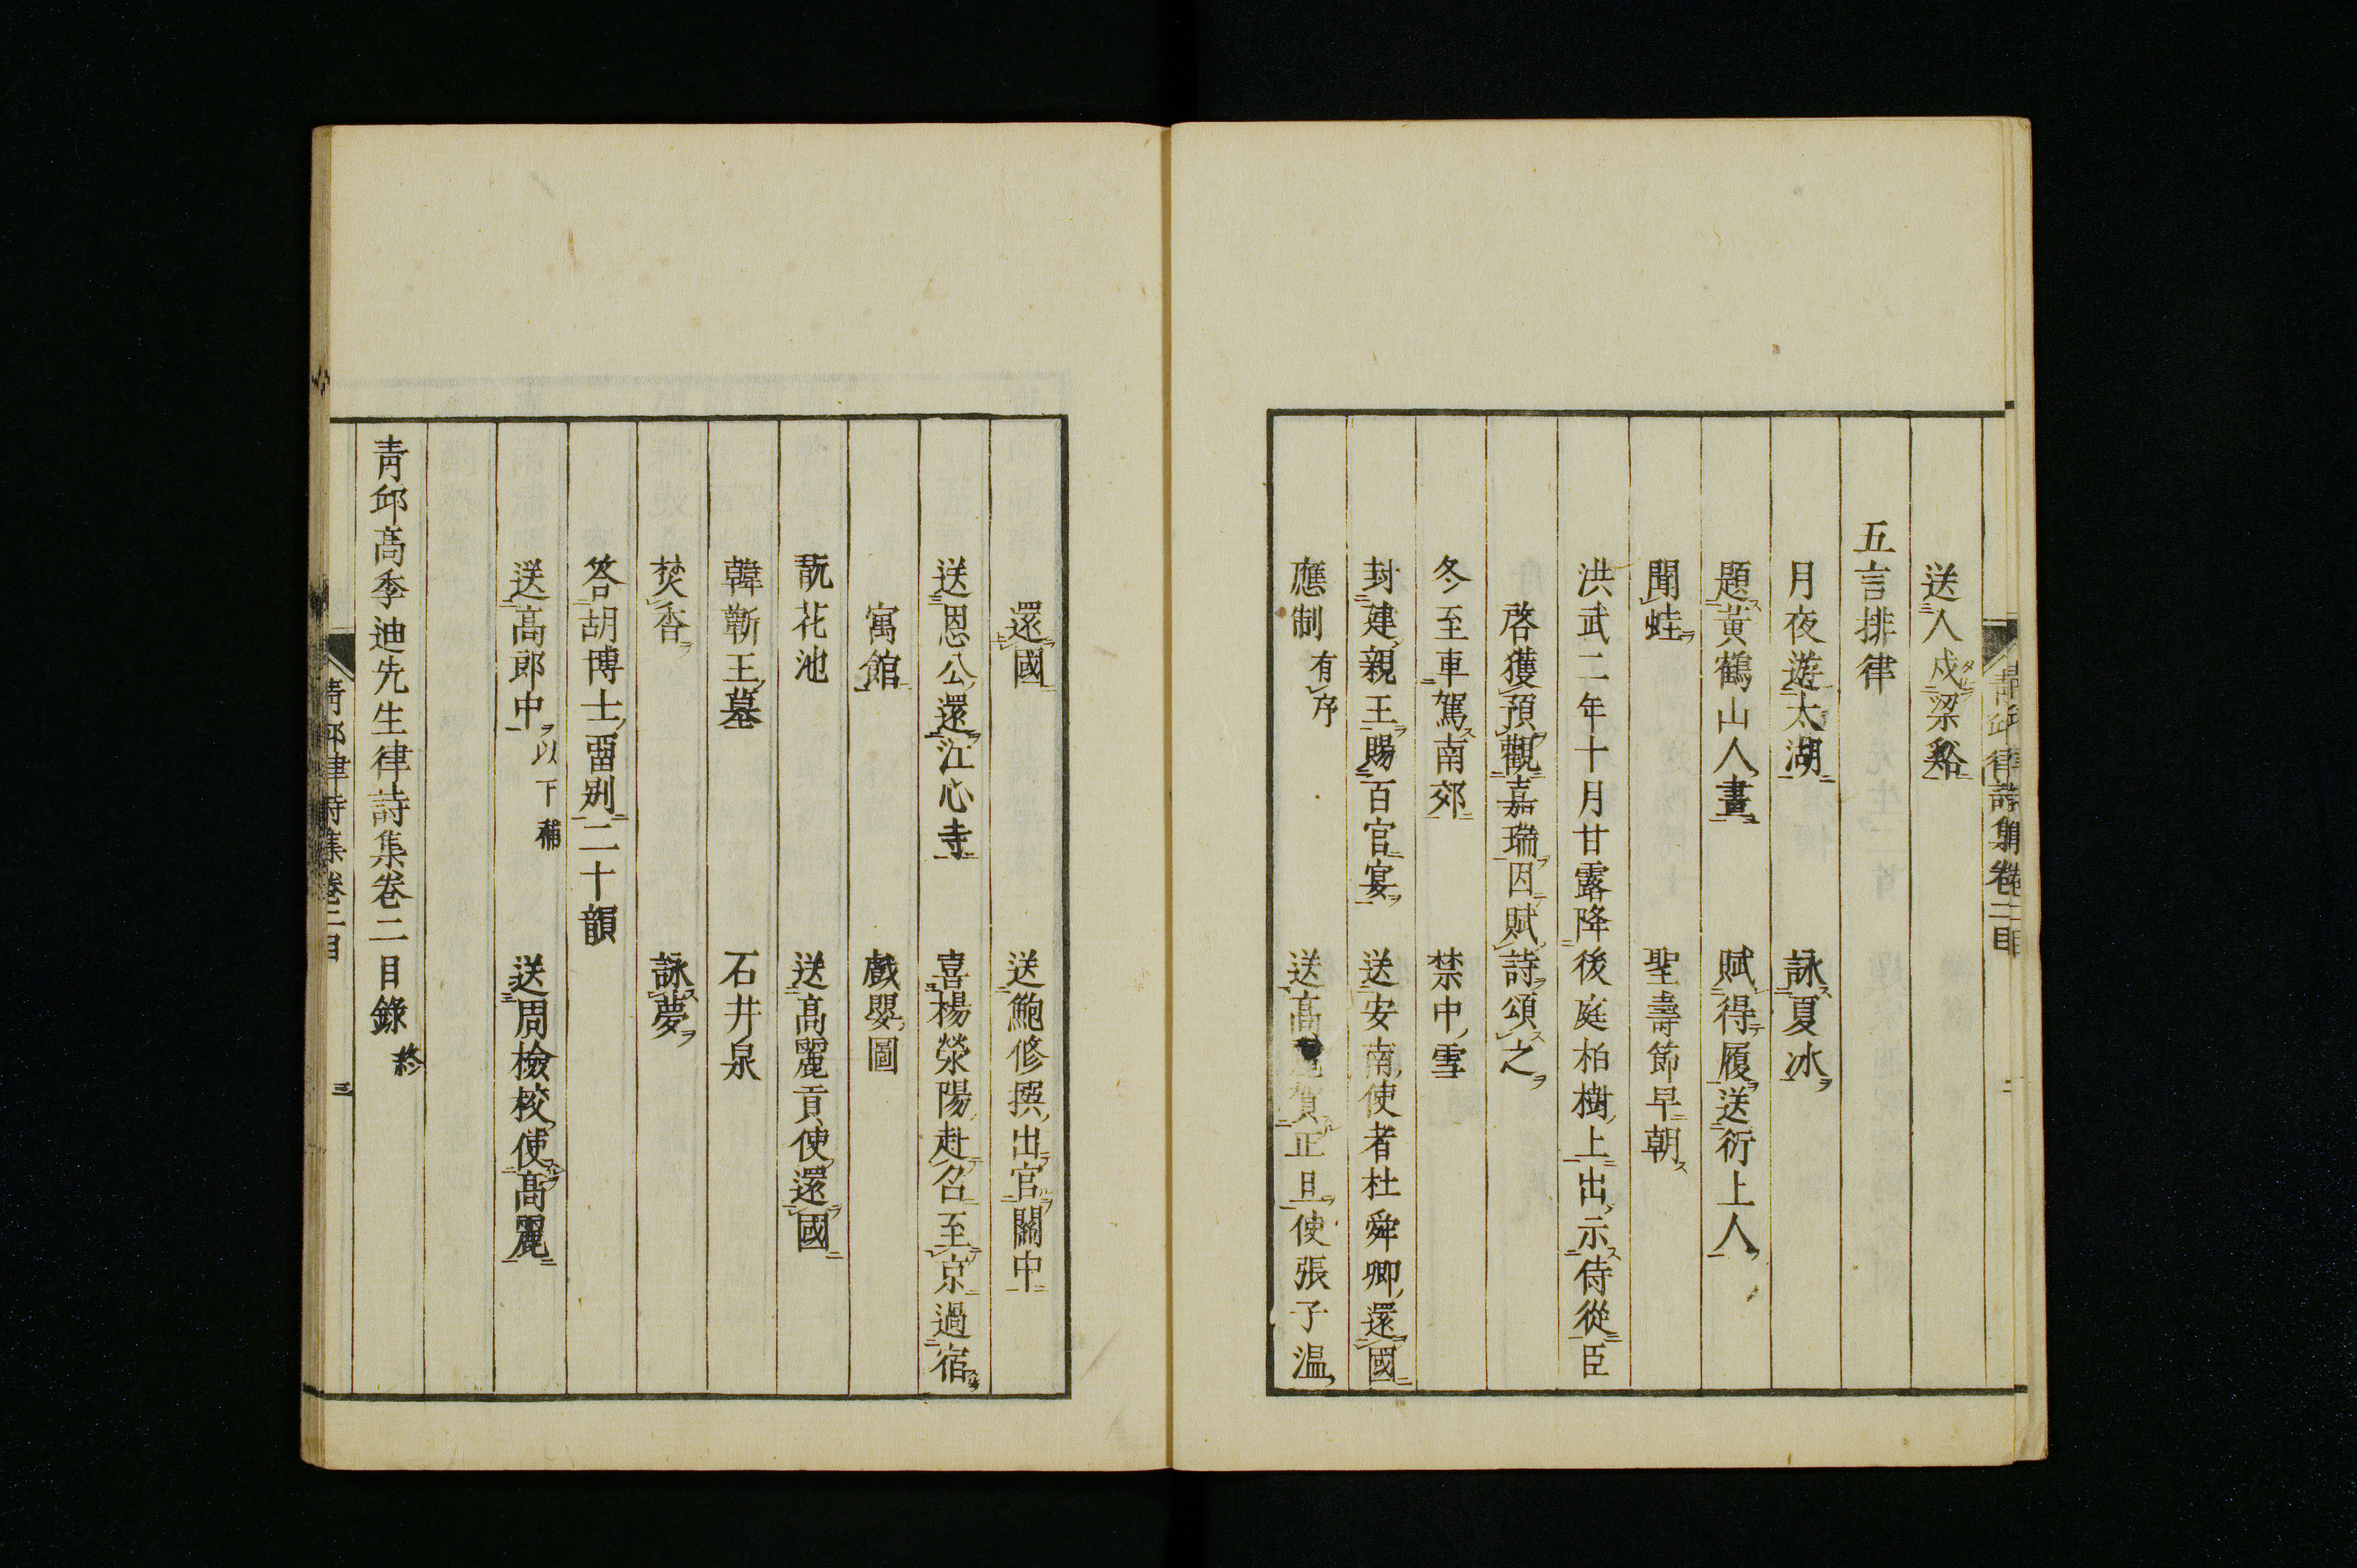 送人戍梁谿
五言排律
月夜遊太湖　詠夏冰
題黃鶴山人畫　賦得履送衍上人
聞蛙　聖壽節早朝
洪武二年十月甘露降後庭柏樹上出示侍從臣
啓獲預觀嘉瑞因賦詩頌之
冬至車駕南郊　禁中雪
封建親王賜百官宴　送安南使者杜舜卿還國
應制有序　送高麗賀正旦使張子温
還國　送鮑修撰出官關中
送恩公還江心寺　喜楊滎陽赴召至京過宿
寓館　戲嬰圖
翫花池　送高麗貢使還國
韓蘄王墓　石井泉
焚香　詠夢
答胡博士留別二十韻
送高郎中以下補　送周檢校使高麗
青邱高季迪先生律詩集卷二目錄終
青邱律詩集　卷二目　三